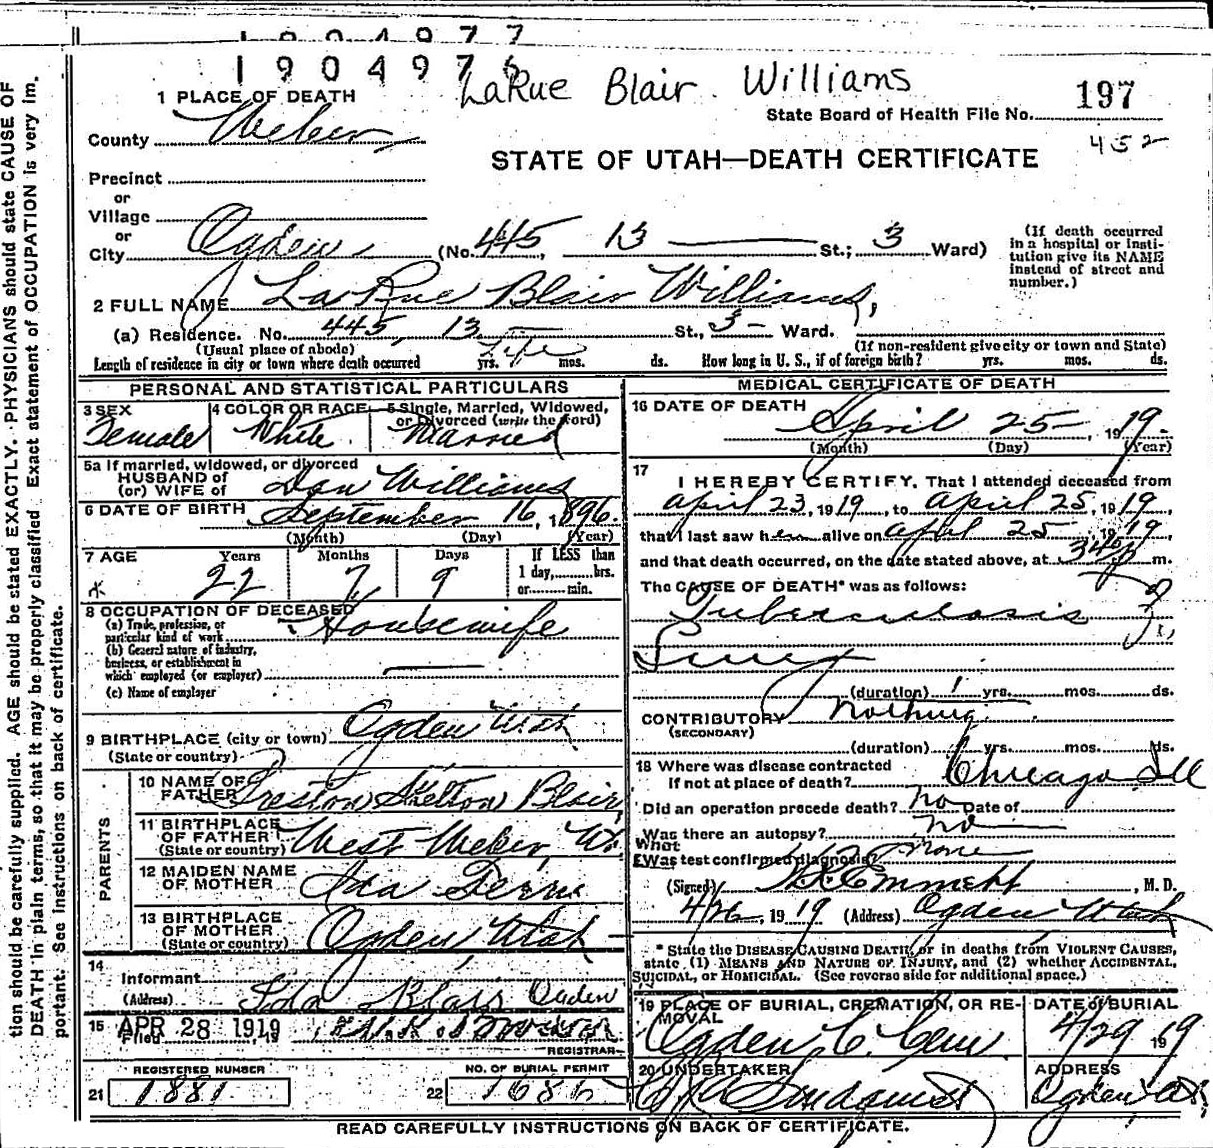 1904977
1904976
LaRue Blair Williams
1 PLACE OF DEATH
State Board of Health File No. 197
County Weber
452
STATE OF UTAH—DEATH CERTIFICATE
Precinct
or
Village
or
City Ogden (No. 445, 13 St.; 3 Ward)
(If death occurred in a hospital or institution give its NAME instead of street and number.)
2 FULL NAME LaRue Blair Williams,
(a) Residence. No. 445, 13 St., 3 Ward.
(Usual place of abode) (If non-resident give city or town and State)
Length of residence in city or town where death occurred Life yrs. mos. ds. How long in U. S., if of foreign birth? yrs. mos. ds.
PERSONAL AND STATISTICAL PARTICULARS
3 SEX Female
4 COLOR OR RACE White
5 Single, Married, Widowed, or Divorced (write the word) Married
5a If married, widowed, or divorced
HUSBAND of
(or) WIFE of Dan Williams
6 DATE OF BIRTH September 16, 1896
(Month) (Day) (Year)
7 AGE Years Months Days If LESS than
22 7 9 1 day, hrs.
or min.
8 OCCUPATION OF DECEASED
(a) Trade, profession, or particular kind of work Housewife
(b) General nature of industry, business, or establishment in which employed (or employer)
(c) Name of employer
9 BIRTHPLACE (city or town) Ogden Utah
(State or country)
PARENTS
10 NAME OF FATHER Preston Skelton Blair
11 BIRTHPLACE OF FATHER West Weber, Ut.
(State or country)
12 MAIDEN NAME OF MOTHER Ida
13 BIRTHPLACE OF MOTHER Ogden Utah
(State or country)
14
Informant Ida Blair Ogden
(Address)
15 Filed APR 28 1919, 19
REGISTRAR
REGISTERED NUMBER
21 1881
NO. OF BURIAL PERMIT
22 1686
MEDICAL CERTIFICATE OF DEATH
16 DATE OF DEATH
April 25, 1919
(Month) (Day) (Year)
17
I HEREBY CERTIFY, That I attended deceased from
april 23, 1919, to april 25, 1919,
that I last saw her alive on april 25 1919,
and that death occurred, on the date stated above, at m.
The CAUSE OF DEATH* was as follows:
Tuberculosis of
Lung
(duration) 1 yrs. mos. ds.
CONTRIBUTORY Nothing
(SECONDARY)
(duration) yrs. mos. ds.
18 Where was disease contracted
if not at place of death? Chicago Ill
Did an operation precede death? no Date of
Was there an autopsy? no
What
Was test confirmed diagnosis? none
(Signed) Emmett, M. D.
4/26, 1919 (Address) Ogden Utah
* State the DISEASE CAUSING DEATH, or in deaths from VIOLENT CAUSES,
state (1) MEANS AND NATURE OF INJURY, and (2) whether ACCIDENTAL,
SUICIDAL, or HOMICIDAL. (See reverse side for additional space.)
19 PLACE OF BURIAL, CREMATION, OR REMOVAL
Ogden C. Cem.
DATE of BURIAL
4/29 1919
20 UNDERTAKER
Lindquist
ADDRESS
Ogden Ut.
READ CAREFULLY INSTRUCTIONS ON BACK OF CERTIFICATE.
tion should be carefully supplied. AGE should be stated EXACTLY. PHYSICIANS should state CAUSE OF
DEATH in plain terms, so that it may be properly classified. Exact statement of OCCUPATION is very im.
portant. See instructions on back of certificate.